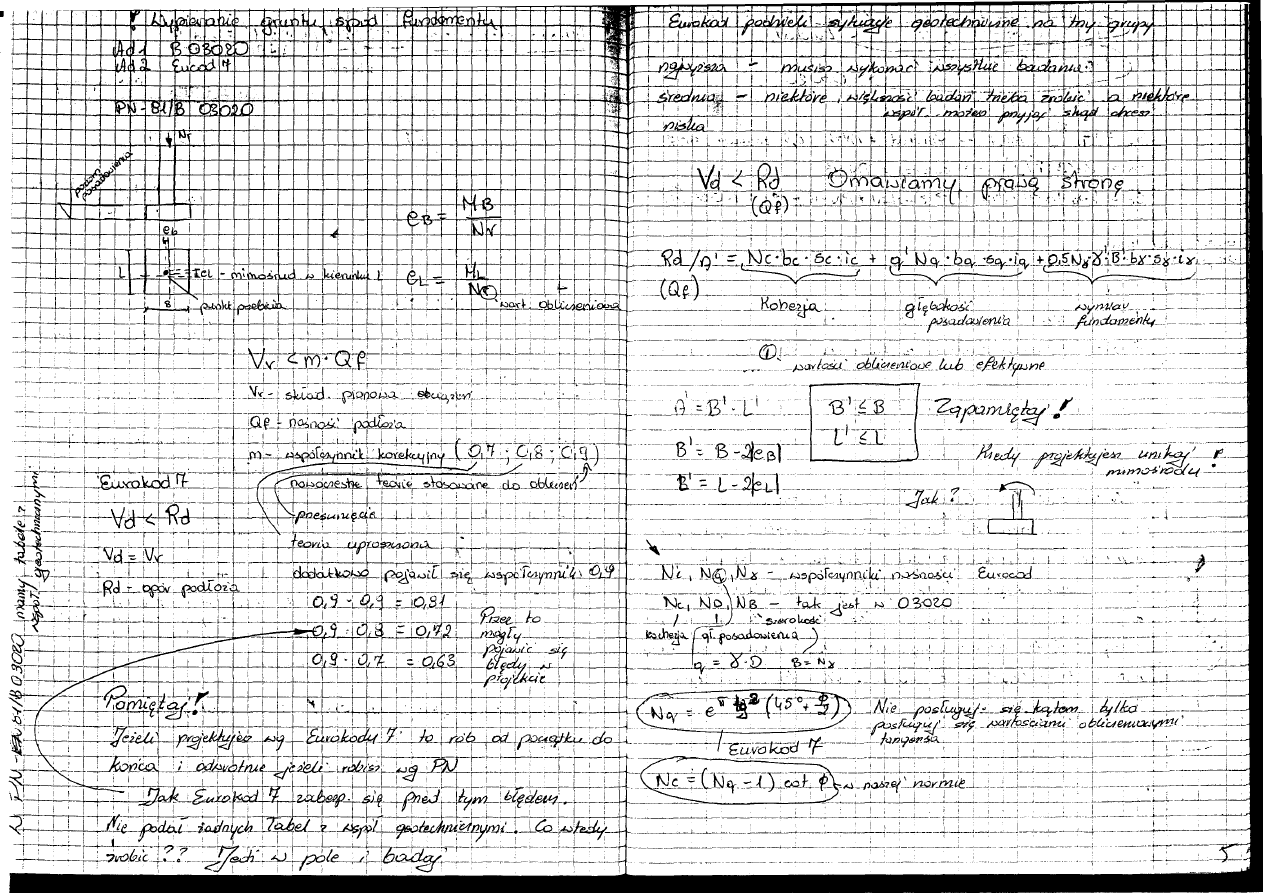 ! Wypieranie gruntu spod fundamentu
Ad 1 B 03020
Ad 2 Eucod 7
PN-81/B 03020
Nr
poziom posadowienia
eB
L
eL - mimośrud w kierunku l
B
punkt przebicia
eB = MB / Nr
eL = ML / Nr
wart. obliczeniowa
Vr < m · Qf
Vr - skład. pionowa obciążeń
Qf - nośność podłoża
m - współczynnik korekcyjny (0,7 ; 0,8 ; 0,9)
nowoczesne teorie stosowane do obliczeń
przesunięcie
teoria uproszczona
Eurokod 7
Vd < Rd
Vd = Vr
Rd - opór podłoża
dodatkowo pojawił się współczynnik 0,9
0,9 · 0,9 = 0,81
0,9 · 0,8 = 0,72
0,9 · 0,7 = 0,63
Przez to
mogły
pojawić się
błędy w
projekcie
Pomiętaj!
Jeżeli projektujesz wg Eurokodu 7 to rób od początku do
końca i odwrotnie jeżeli robisz wg PN
Jak Eurokod 7 zabezp. się przed tym błędem.
Nie podał żadnych Tabel z wspól geotechnicznymi. Co wtedy
zrobić ?? Jedź w pole i badaj
w PN-81/B 03020 mamy tabele z
współ. geotechnicznymi
Eurokod podzielił sytuacje geotechniczne na trzy grupy
najwyższa - musisz wykonać wszystkie badania
średnia - niektóre, większość badań trzeba zrobić a niektóre
współ. możesz przyjąć skąd chcesz
niska
Vd < Rd Omawiamy prawą stronę
(Qf)
Rd/A' = Nc·bc·sc·ic + q'Nq·bq·sq·iq + 0,5Nγ·γ'·B'·bγ·sγ·iγ
(Qf)
Kohezja
głębokość
posadowienia
wymiar
fundamentu
①
wartości obliczeniowe lub efektywne
A' = B'·L'
B' ≤ B
L' ≤ L
Zapamiętaj!
B' = B-2|eB|
B' = L-2|eL|
Kiedy projektujesz unikaj
mimośrodu!
Jak?
Nc, Nq, Nγ - współczynniki nośności Eurocod
Nc, ND, NB - tak jest w 03020
szerokość
kochezja
gł. posadowienia
q = γ·D B = Nγ
Nq = e^π tg² (45°+ φ/2)
Nie posługuj się kątem tylko
posługuj się wartościami obliczeniowymi
tangensa
Eurokod 7
Nc = (Nq -1) cot φ - w naszej normie
5